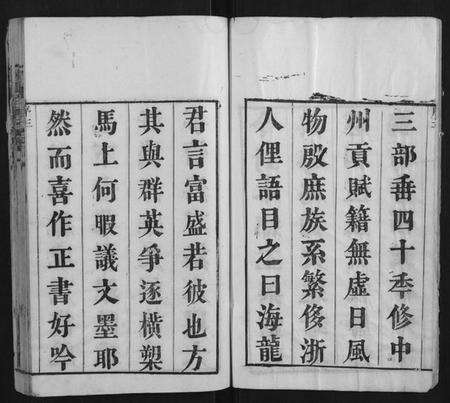 三部垂四十季修中
州貢賦籍無虛日風
物殷庶族系繁侈浙
人俚語目之曰海龍
君言富盛若彼也方
其與群英爭逐橫槊
馬上何暇議文墨耶
然而喜作正書好吟